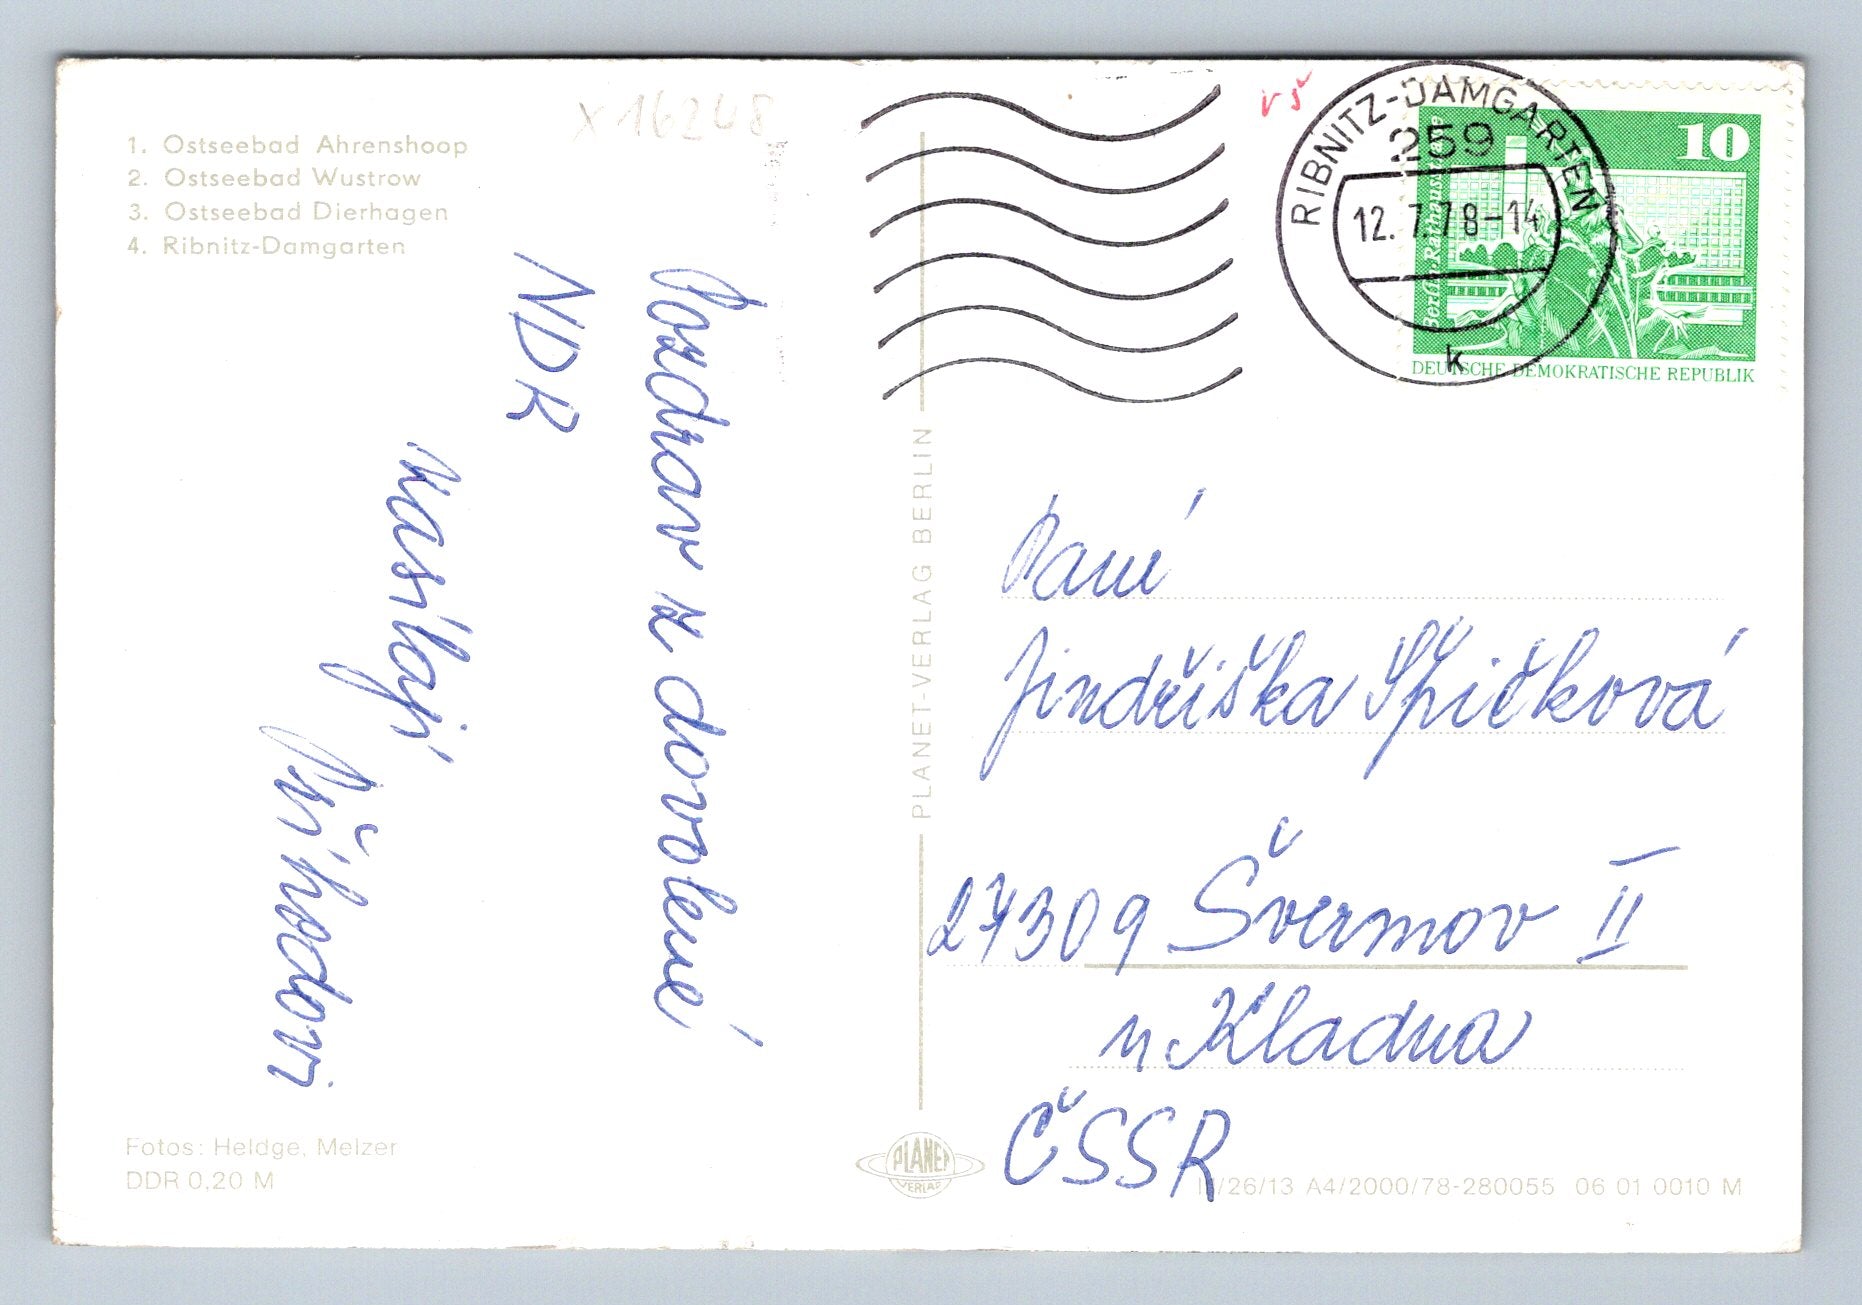 1. Ostseebad Ahrenshoop
2. Ostseebad Wustrow
3. Ostseebad Dierhagen
4. Ribnitz-Damgarten
X 16248
Pozdrav z dovolené
NDR
zasílají
Příhodovi
Fotos: Heldge, Melzer
DDR 0,20 M
PLANET-VERLAG BERLIN
PLANET
VERLAG
RIBNITZ-DAMGARTEN
259
12.7.78-14
k
10
Berlin Rathausstraße
DEUTSCHE DEMOKRATISCHE REPUBLIK
Paní
Jindřiška Špičková
27309 Švermov II
u Kladna
ČSSR
III/26/13 A4/2000/78-280055 06 01 0010 M